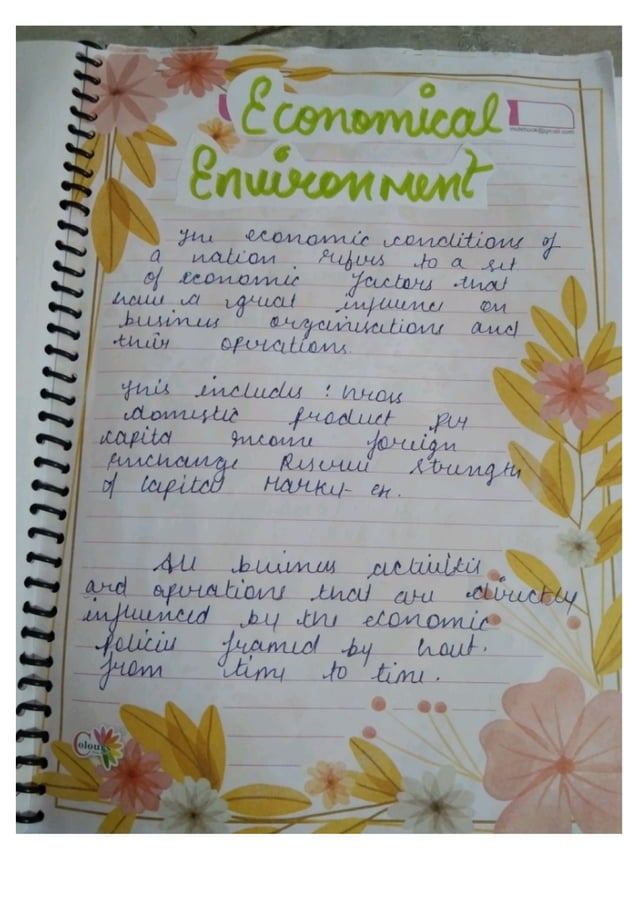 Economical
Environment
The economic conditions of
a nation refers to a set
of economic factors that
have a great influence on
business organisations and
their operations.
This includes : Gross
domestic product per
capita Income foreign
Exchange Reserve Strength
of Capital Market etc.
All business activities
and operations that are directly
influenced by the economic
policies framed by Govt.
from time to time.
Colours